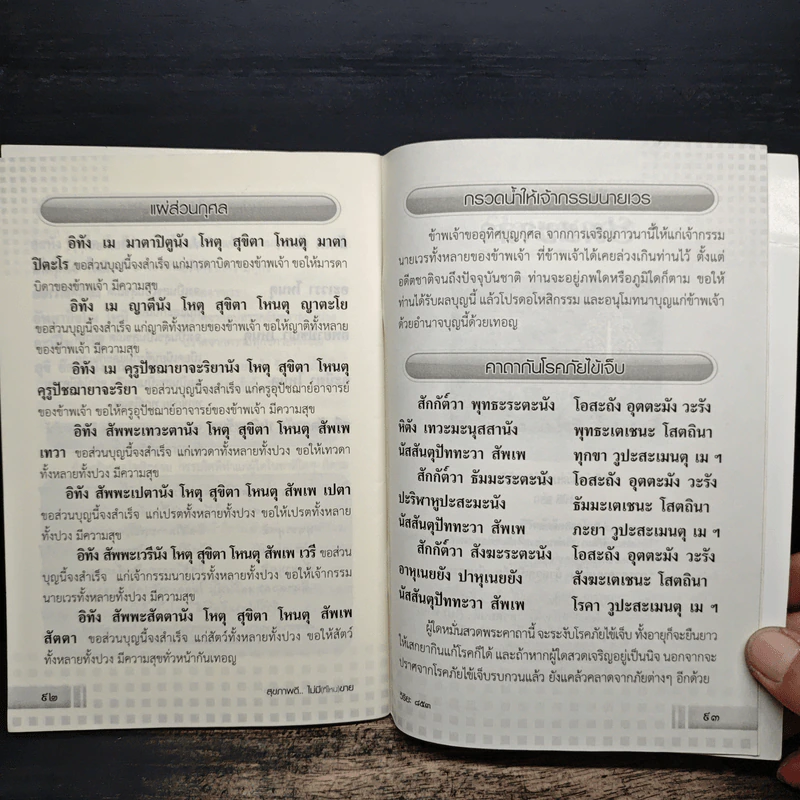 แผ่ส่วนกุศล
อิทัง เม มาตาปิตูนัง โหตุ สุขิตา โหนตุ มาตา
ปิตะโร ขอส่วนบุญนี้จงสำเร็จ แก่มารดาบิดาของข้าพเจ้า ขอให้มารดา
บิดาของข้าพเจ้า มีความสุข
อิทัง เม ญาตีนัง โหตุ สุขิตา โหนตุ ญาตะโย
ขอส่วนบุญนี้จงสำเร็จ แก่ญาติทั้งหลายของข้าพเจ้า ขอให้ญาติทั้งหลาย
ของข้าพเจ้า มีความสุข
อิทัง เม คุรูปัชฌายาจะริยานัง โหตุ สุขิตา โหนตุ
คุรูปัชฌายาจะริยา ขอส่วนบุญนี้จงสำเร็จ แก่ครูอุปัชฌาย์อาจารย์
ของข้าพเจ้า ขอให้ครูอุปัชฌาย์อาจารย์ของข้าพเจ้า มีความสุข
อิทัง สัพพะเทวะตานัง โหตุ สุขิตา โหนตุ สัพเพ
เทวา ขอส่วนบุญนี้จงสำเร็จ แก่เทวดาทั้งหลายทั้งปวง ขอให้เทวดา
ทั้งหลายทั้งปวง มีความสุข
อิทัง สัพพะเปตานัง โหตุ สุขิตา โหนตุ สัพเพ เปตา
ขอส่วนบุญนี้จงสำเร็จ แก่เปรตทั้งหลายทั้งปวง ขอให้เปรตทั้งหลาย
ทั้งปวง มีความสุข
อิทัง สัพพะเวรีนัง โหตุ สุขิตา โหนตุ สัพเพ เวรี ขอส่วน
บุญนี้จงสำเร็จ แก่เจ้ากรรมนายเวรทั้งหลายทั้งปวง ขอให้เจ้ากรรม
นายเวรทั้งหลายทั้งปวง มีความสุข
อิทัง สัพพะสัตตานัง โหตุ สุขิตา โหนตุ สัพเพ
สัตตา ขอส่วนบุญนี้จงสำเร็จ แก่สัตว์ทั้งหลายทั้งปวง ขอให้สัตว์
ทั้งหลายทั้งปวง มีความสุขทั่วหน้ากันเทอญ
๙๒
สุขภาพดี.. ไม่มี(ที่ไหน)ขาย
กรวดน้ำให้เจ้ากรรมนายเวร
ข้าพเจ้าขออุทิศบุญกุศล จากการเจริญภาวนานี้ให้แก่เจ้ากรรม
นายเวรทั้งหลายของข้าพเจ้า ที่ข้าพเจ้าได้เคยล่วงเกินท่านไว้ ตั้งแต่
อดีตชาติจนถึงปัจจุบันชาติ ท่านจะอยู่ภพใดหรือภูมิใดก็ตาม ขอให้
ท่านได้รับผลบุญนี้ แล้วโปรดอโหสิกรรม และอนุโมทนาบุญแก่ข้าพเจ้า
ด้วยอำนาจบุญนี้ด้วยเทอญ
คาถากันโรคภัยไข้เจ็บ
สักกัต์วา พุทธะระตะนัง โอสะถัง อุตตะมัง วะรัง
หิตัง เทวะมะนุสสานัง พุทธะเตเชนะ โสตถินา
นัสสันตุปัททะวา สัพเพ ทุกขา วูปะสะเมนตุ เม ฯ
สักกัต์วา ธัมมะระตะนัง โอสะถัง อุตตะมัง วะรัง
ปะริฬาหูปะสะมะนัง ธัมมะเตเชนะ โสตถินา
นัสสันตุปัททะวา สัพเพ ภะยา วูปะสะเมนตุ เม ฯ
สักกัต์วา สังฆะระตะนัง โอสะถัง อุตตะมัง วะรัง
อาหุเนยยัง ปาหุเนยยัง สังฆะเตเชนะ โสตถินา
นัสสันตุปัททะวา สัพเพ โรคา วูปะสะเมนตุ เม ฯ
ผู้ใดหมั่นสวดพระคาถานี้ จะระงับโรคภัยไข้เจ็บ ทั้งอายุก็จะยืนยาว
ให้เสกยากินแก้โรคก็ได้ และถ้าหากผู้ใดสวดเจริญอยู่เป็นนิจ นอกจากจะ
ปราศจากโรคภัยไข้เจ็บรบกวนแล้ว ยังแคล้วคลาดจากภัยต่างๆ อีกด้วย
วิริยะ ๘๕๓
๙๓